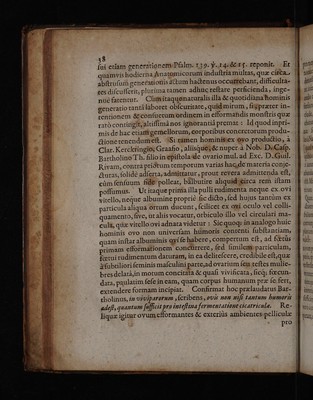 38
sui etiam generationem Psalm. 139. v. 14. & 15. reponit. Et
quamvis hodierna Anatomicorum industria multas, quæ circa
abstrusum generationis actum hactenus occurrebant, difficulta-
tes discusserit, plurima tamen adhuc restare perficienda, inge-
nue fatentur. Cum itaque naturalis illa & quotidiana hominis
generatio tanta laboret obscuritate, quid mirum, si præter in-
tentionem & consuetum ordinem in efformandis monstris quæ
raro contingit, altissima nos ignorantia premat: Id quod inpri-
mis de hac etiam gemellorum, corporibus concretorum produ-
ctione tenendum est. Si tamen hominis ex ovo productio, à
Clar. Kerckringio, Graafio, aliisque, & nuper à Nob. Dn. Casp.
Bartholino Th. filio in epistola de ovario mul. ad Exc. D. Guil.
Rivam, contra priorum temporum varias hac de materia conje-
cturas, solidè asserta, admittatur, prout revera admittenda est,
cùm sensuum side polleat, balbutire aliquid circa rem istam
possumus. Ut itaque prima illa pulli rudimenta neque ex ovi
vitello, neque albumine proprie sic dicto, sed hujus tantum ex
particula aliqua ortum ducunt, scilicet ex ovi oculo vel colli-
quamento, sive, ut aliis vocatur, orbiculo illo vel circulari ma-
cula, quæ vitello ovi adnata videtur: Sic quoque in analogo huic
hominis ovo non universam humoris contenti substantiam,
quam instar albuminis ovi se habere, compertum est, ad fœtus
primam efformationem concurrere, sed similem particulam,
fœtui rudimentum daturam, in ea delitescere, credibile est, quæ
à subtiliori seminis masculini parte, ad ovarium seu testes mulie-
bres delatâ, in motum concitata & quasi vivificata, sicque fœcun-
data, paulatim sese in eam, quam corpus humanum præ se fert,
extendere formam incipiat. Confirmat hoc prælaudatus Bar-
tholinus, in viviparorum, scribens, ovis non nisi tantum humoris
adest, quantum sufficit pro intestina fermentatione cicatriculæ. Re-
liquæ igitur ovum efformantes & exteriùs ambientes pelliculæ
pro